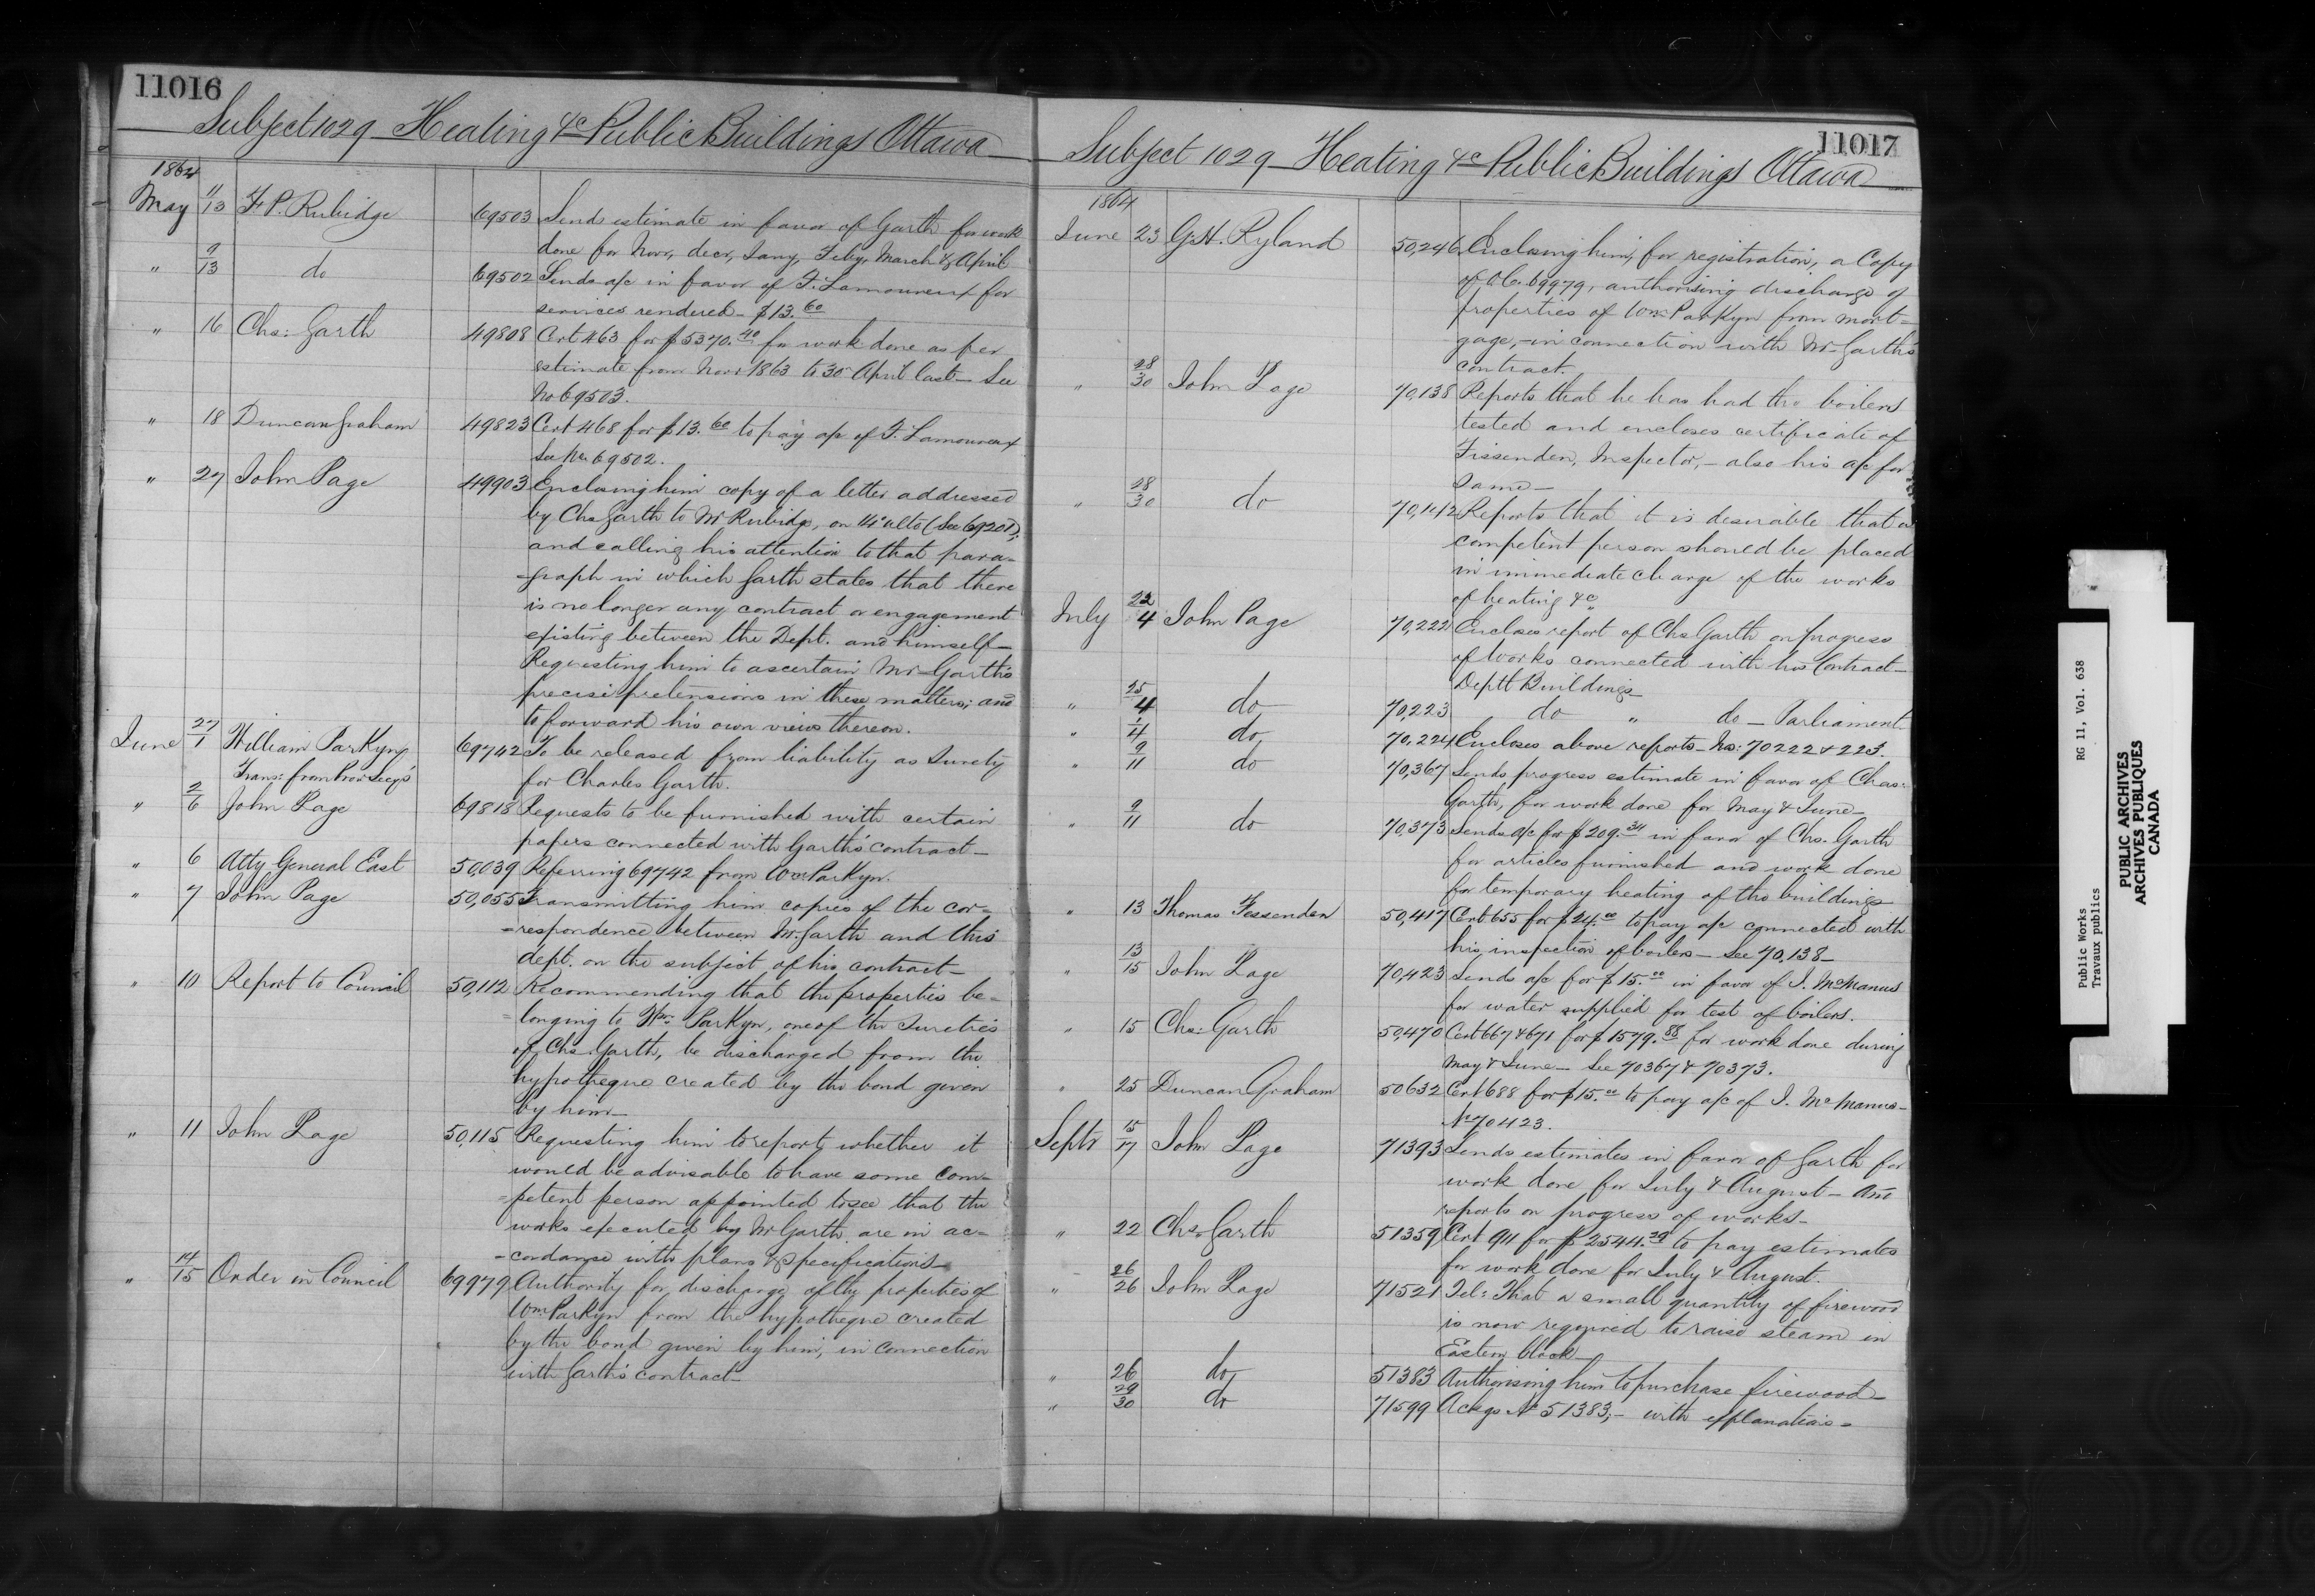 11016
Subject 1029 Heating &c Public Buildings Ottawa
1864
May 11/13 F. P. Rubidge 69503 Sends estimate in favor of Garth for work
done for Novr, decr, Jany, Feby, March & April
" 9/13 do 69502 Sends a/c in favor of F. Lamoureux for
services rendered - $13.60
" 16 Chs: Garth 49808 Cert 463 for $5370.40 for work done as per
estimate from Novr 1863 to 30 April last - See
No 69503.
" 18 Duncan Graham 49823 Cert 468 for $13.60 to pay a/c of F. Lamoureux
See No. 69502.
" 27 John Page 49903 Enclosing him copy of a letter addressed
by Chs Garth to Mr Rubidge, on 14 ulto (See 69201);
and calling his attention to that para-
-graph in which Garth states that there
is no longer any contract or engagement
existing between the Dept. and himself -
Requesting him to ascertain Mr Garth's
precise pretensions in these matters; and
to forward his own views thereon.
June 27/1 William Parkyn 69742 To be released from liability as Surety
Trans: from Prov Secy's for Charles Garth.
" 2/6 John Page 69818 Requests to be furnished with certain
papers connected with Garth's contract -
" 6 Atty General East 50,039 Referring 69742 from Wm Parkyn.
" 7 John Page 50,055 Transmitting him copies of the cor-
-respondence between Mr Garth and this
dept. on the subject of his contract -
" 10 Report to Council 50,112 Recommending that the properties be-
-longing to Wm Parkyn, one of the Sureties
of Chs Garth, be discharged from the
hypotheque created by the bond given
by him -
" 11 John Page 50,115 Requesting him to report, whether it
would be advisable to have some com-
-petent person appointed to see that the
works executed by Mr Garth are in ac-
-cordance with plans & specifications -
" 14/15 Order in Council 69979 Authority for discharge of the properties of
Wm Parkyn from the hypotheque created
by the bond given by him, in connection
with Garth's contract -
11017
Subject 1029 Heating &c Public Buildings Ottawa
1864
June 23 G. H. Ryland 50,246 Enclosing him, for registration, a Copy
of O.C. 69979, authorising discharge of
properties of Wm Parkyn from mort-
gage, - in connection with Mr Garth's
contract.
" 28/30 John Page 70,138 Reports that he has had the boilers
tested and encloses certificate of
Fissenden, Inspector, - also his a/c for
same -
" 28/30 do 70,142 Reports that it is desirable that a
competent person should be placed
in immediate charge of the works
of heating &c
July 22/4 John Page 70,222 Encloses report of Chs Garth on progress
of Works connected with his Contract -
Deptl Buildings -
" 25/4 do 70,223 do " do - Parliament
" 1/4 do 70,224 Encloses above reports - Nos: 70222 & 223.
" 9/11 do 70,367 Sends progress estimate in favor of Chas:
Garth, for work done for May & June -
" 9/11 do 70,373 Sends a/c for $209.34 in favor of Chs. Garth
for articles furnished and work done
for temporary heating of the buildings
" 13 Thomas Fessenden 50,417 Cert 655 for $24.00 to pay a/c connected with
his inspection of boilers - See 70,138 -
" 13/15 John Page 70,423 Sends a/c for $15.00 in favor of J. McManus
for water supplied for test of boilers.
" 15 Chs: Garth 50,470 Cert 667 & 671 for $1579.88 for work done during
May & June - See 70367 & 70373.
" 25 Duncan Graham 50632 Cert 688 for $15.00 to pay a/c of J. McManus -
No 70423.
Septr 15/17 John Page 71393 Sends estimates in favor of Garth for
work done for July & August - And
reports on progress of works -
" 22 Chs. Garth 51359 Cert 911 for $2544.39 to pay estimates
for work done for July & August.
" 26/26 John Page 71521 Tel: That a small quantity of firewood
is now required to raise steam in
Eastern block -
" 26 do 51383 Authorising him to purchase firewood -
" 29/30 do 71599 Ackgs No 51383, - with explanations -
Public Works RG 11, Vol. 638
Travaux publics
PUBLIC ARCHIVES
ARCHIVES PUBLIQUES
CANADA